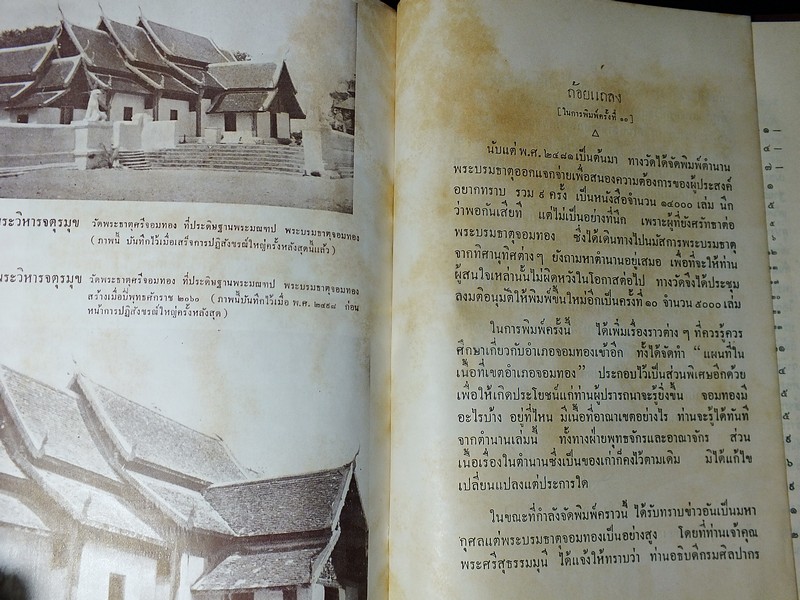 พระวิหารจตุรมุข วัดพระธาตุศรีจอมทอง ที่ประดิษฐานพระมณฑป พระบรมธาตุจอมทอง
( ภาพนี้ บันทึกไว้เมื่อเสร็จการปฏิสังขรณ์ใหญ่ครั้งหลังสุดนี้แล้ว )
พระวิหารจตุรมุข วัดพระธาตุศรีจอมทอง ที่ประดิษฐานพระมณฑป พระบรมธาตุจอมทอง
สร้างเมื่อปีพุทธศักราช ๒๐๖๐ ( ภาพนี้บันทึกไว้เมื่อ พ.ศ. ๒๔๙๘ ก่อน
หน้าการปฏิสังขรณ์ใหญ่ครั้งหลังสุด )
ถ้อยแถลง
[ ในการพิมพ์ครั้งที่ ๑๐ ]
นับแต่ พ.ศ. ๒๔๘๑ เป็นต้นมา ทางวัดได้จัดพิมพ์ตำนาน
พระบรมธาตุออกแจกจ่ายเพื่อสนองความต้องการของผู้ประสงค์
อยากทราบ รวม ๙ ครั้ง เป็นหนังสือจำนวน ๑๔๐๐๐ เล่ม นึก
ว่าพอกันเสียที แต่ไม่เป็นอย่างที่นึก เพราะผู้ที่ยังศรัทธาต่อ
พระบรมธาตุจอมทอง ซึ่งได้เดินทางไปนมัสการพระบรมธาตุ
จากทิศานุทิศต่าง ๆ ยังถามหาตำนานอยู่เสมอ เพื่อที่จะให้ท่าน
ผู้สนใจเหล่านั้นไม่ผิดหวังในโอกาสต่อไป ทางวัดจึงได้ประชุม
ลงมติอนุมัติให้พิมพ์ขึ้นใหม่อีกเป็นครั้งที่ ๑๐ จำนวน ๕๐๐๐ เล่ม
ในการพิมพ์ครั้งนี้ ได้เพิ่มเรื่องราวต่าง ๆ ที่ควรรู้ควร
ศึกษาเกี่ยวกับอำเภอจอมทองเข้าอีก ทั้งได้จัดทำ “ แผนที่ใน
เนื้อที่เขตอำเภอจอมทอง ” ประกอบไว้เป็นส่วนพิเศษอีกด้วย
เพื่อให้เกิดประโยชน์แก่ท่านผู้ปรารถนาจะรู้ยิ่งขึ้น จอมทองมี
อะไรบ้าง อยู่ที่ไหน มีเนื้อที่อาณาเขตอย่างไร ท่านจะรู้ได้ทันที
จากตำนานเล่มนี้ ทั้งทางฝ่ายพุทธจักรและอาณาจักร ส่วน
เนื้อเรื่องในตำนานซึ่งเป็นของเก่าก็คงไว้ตามเดิม มิได้แก้ไข
เปลี่ยนแปลงแต่ประการใด
ในขณะที่กำลังจัดพิมพ์คราวนี้ ได้รับทราบข่าวอันเป็นมหา
กุศลแต่พระบรมธาตุจอมทองเป็นอย่างสูง โดยที่ท่านเจ้าคุณ
พระศรีสุธรรมมุนี ได้แจ้งให้ทราบว่า ท่านอธิบดีกรมศิลปากร